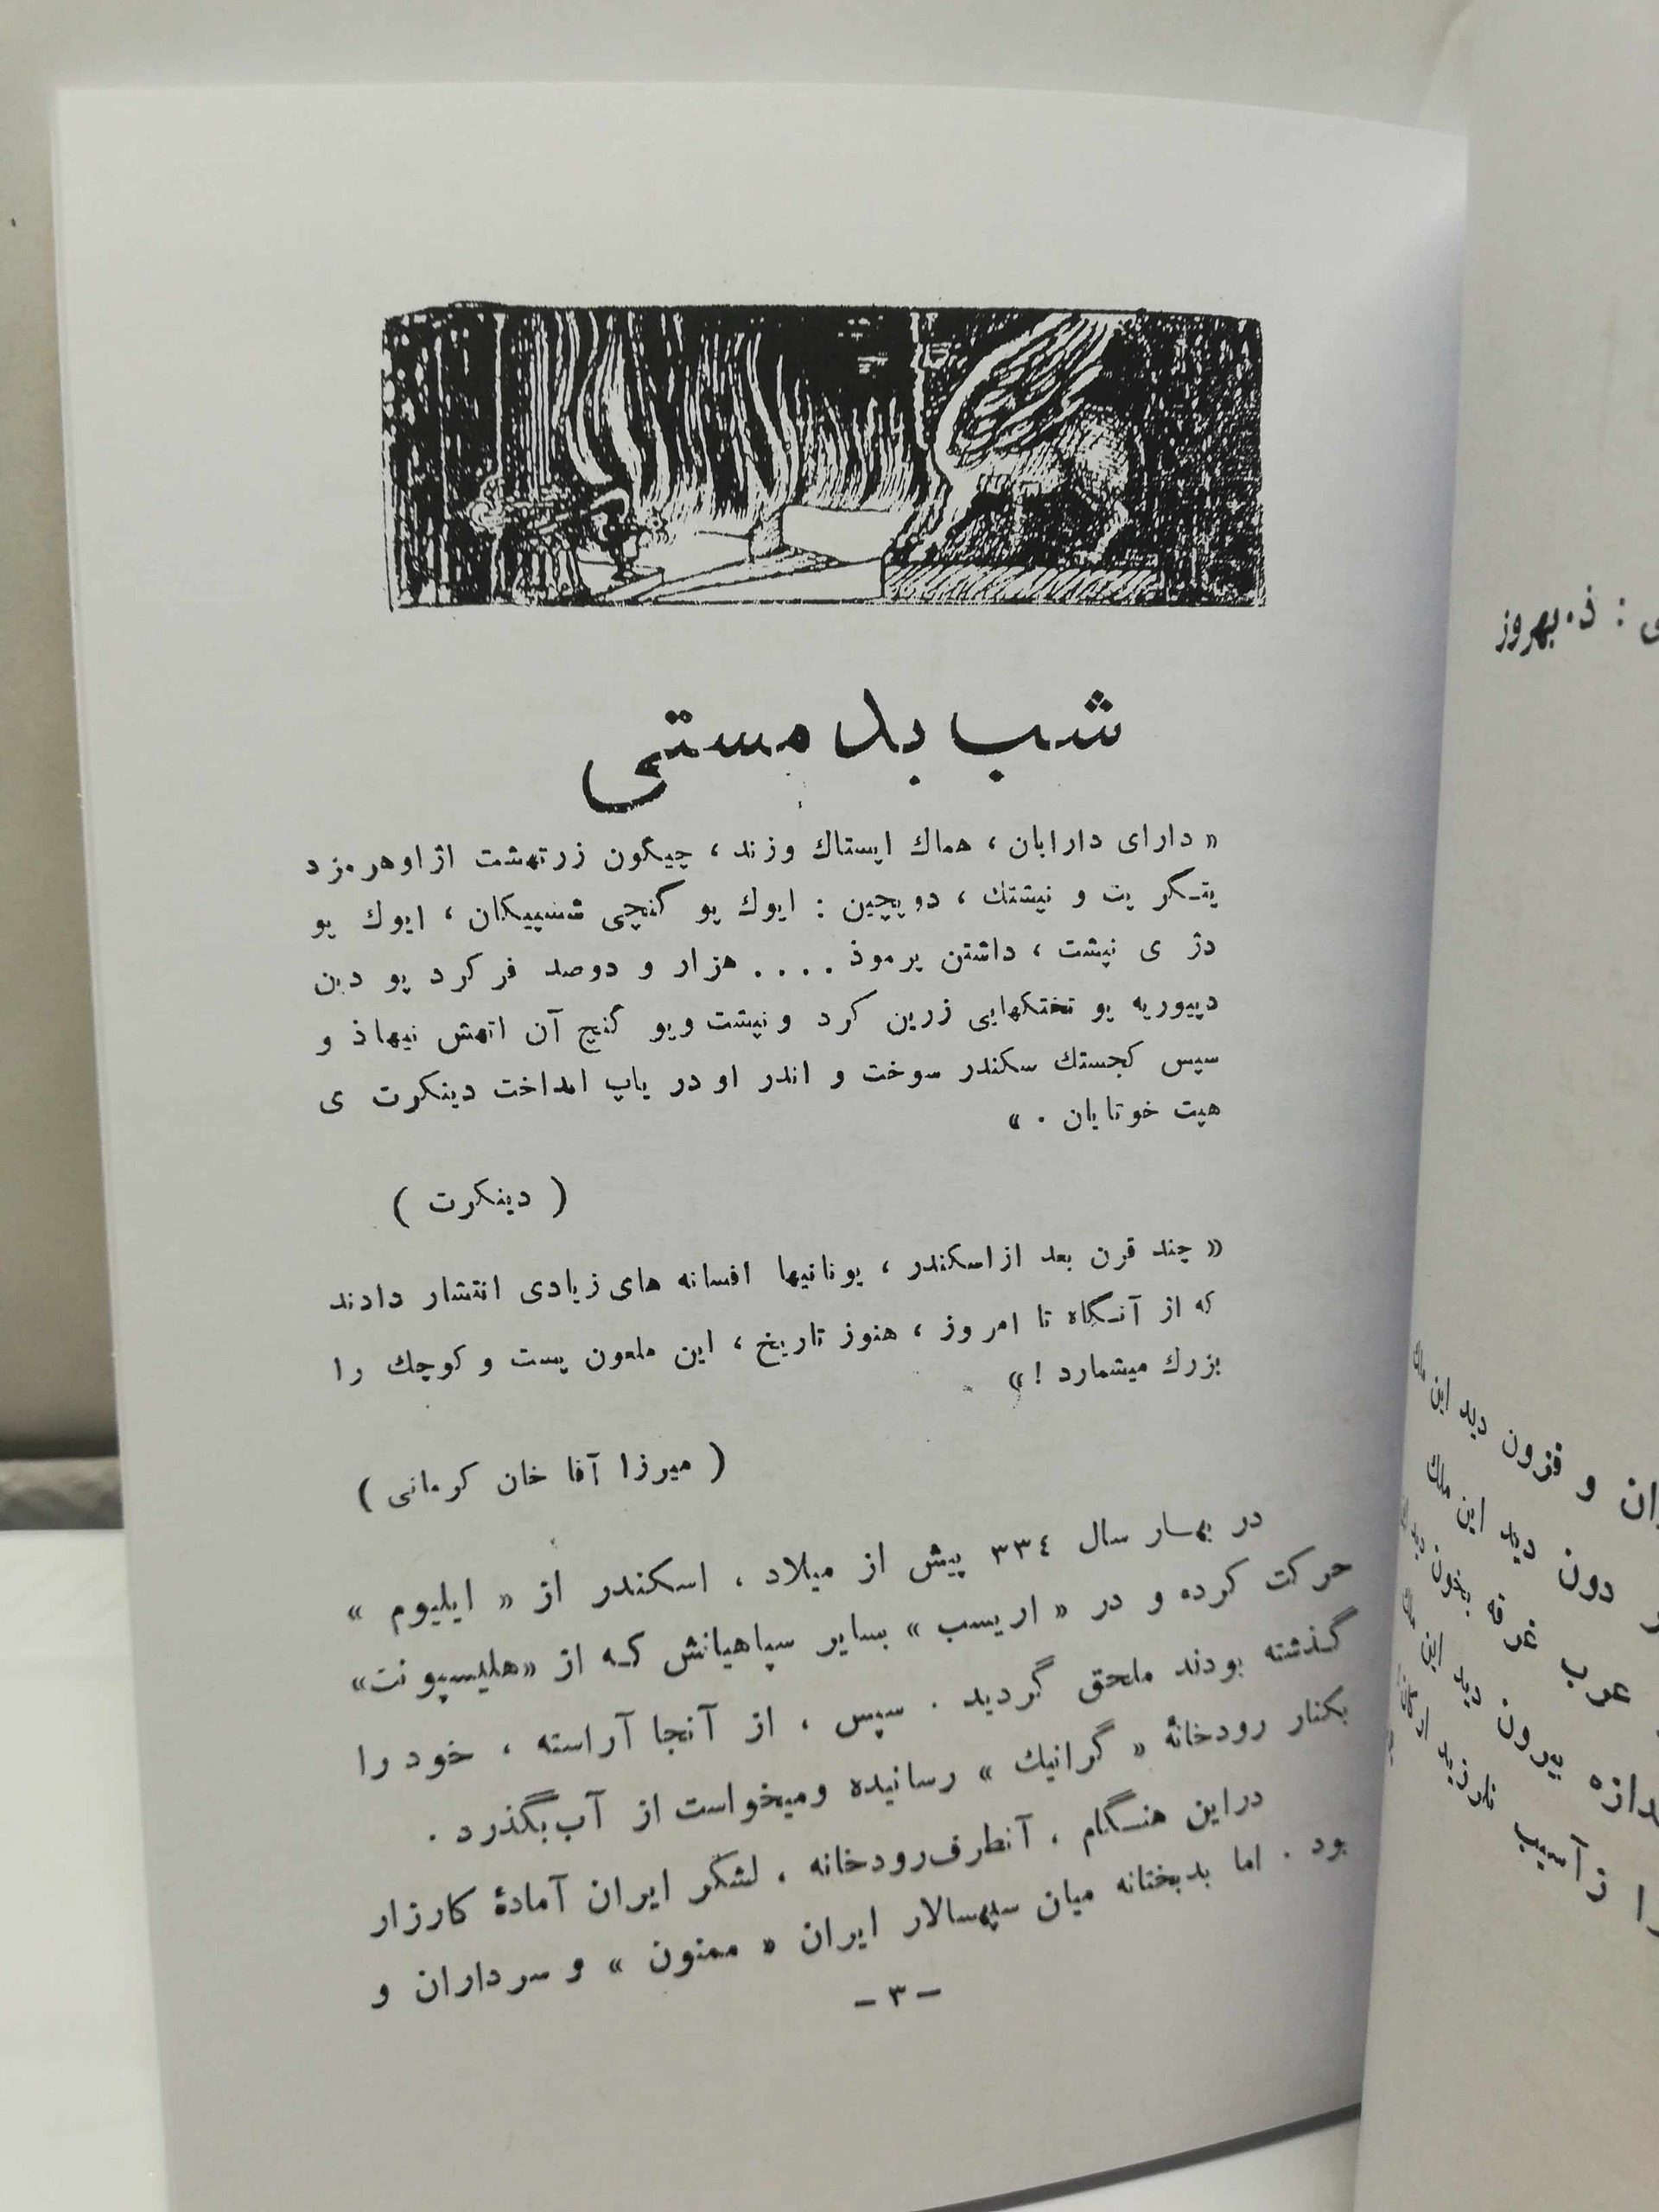 شب بدمستی
« دارای دارایان ، هماك اپستاك وزند ، چیگون زرتهشت اژاوهرمزد
پتـگر پت و نپشتك ، دوپچین : ایوك پو گنچی شسپیکان ، ایوك پو
دژ ی نپشت ، داشتن پرموذ .... هزار و دوصد فرکرد پو دین
دپیوریه پو تختکهایی زرین کرد و نپشت وپو گنچ آن اتهش نیهاذ و
سپس کجستك سکندر سوخت و اندر او دریاپ امداخت دینکرت ی
هپت خوتایان . »
( دینکرت )
« چند قرن بعد ازاسکندر ، یونانیها افسانه های زیادی انتشار دادند
که از آنـگاه تا امروز ، هنوز تاریخ ، این ملعون پست و کوچك را
بزرك میشمارد ! »
( میرزا آقا خان کرمانی )
در بهـار سال ۳۳٤ پیش از میلاد ، اسکندر از « ایلیوم »
حرکت کرده و در « اریسب » بسایر سپاهیانش کـه از «هلیسپونت»
گذشته بودند ملحق گردید . سپس ، از آنجا آراسته ، خود را
بکنار رودخانهٔ « گرانیك » رسانیده ومیخواست از آب بگذرد .
دراین هنـگام ، آنطرف رودخانه ، لشکر ایران آمادهٔ کارزار
بود . اما بدبختانه میان سپهسالار ایران « ممنون » و سرداران و
- ۳ -
: ذ . بهروز
و فزون دید این ملك
دون دید این ملك
عرب غرقه بخون دید
بیرون دید این ملك
زآسیب نلرزید